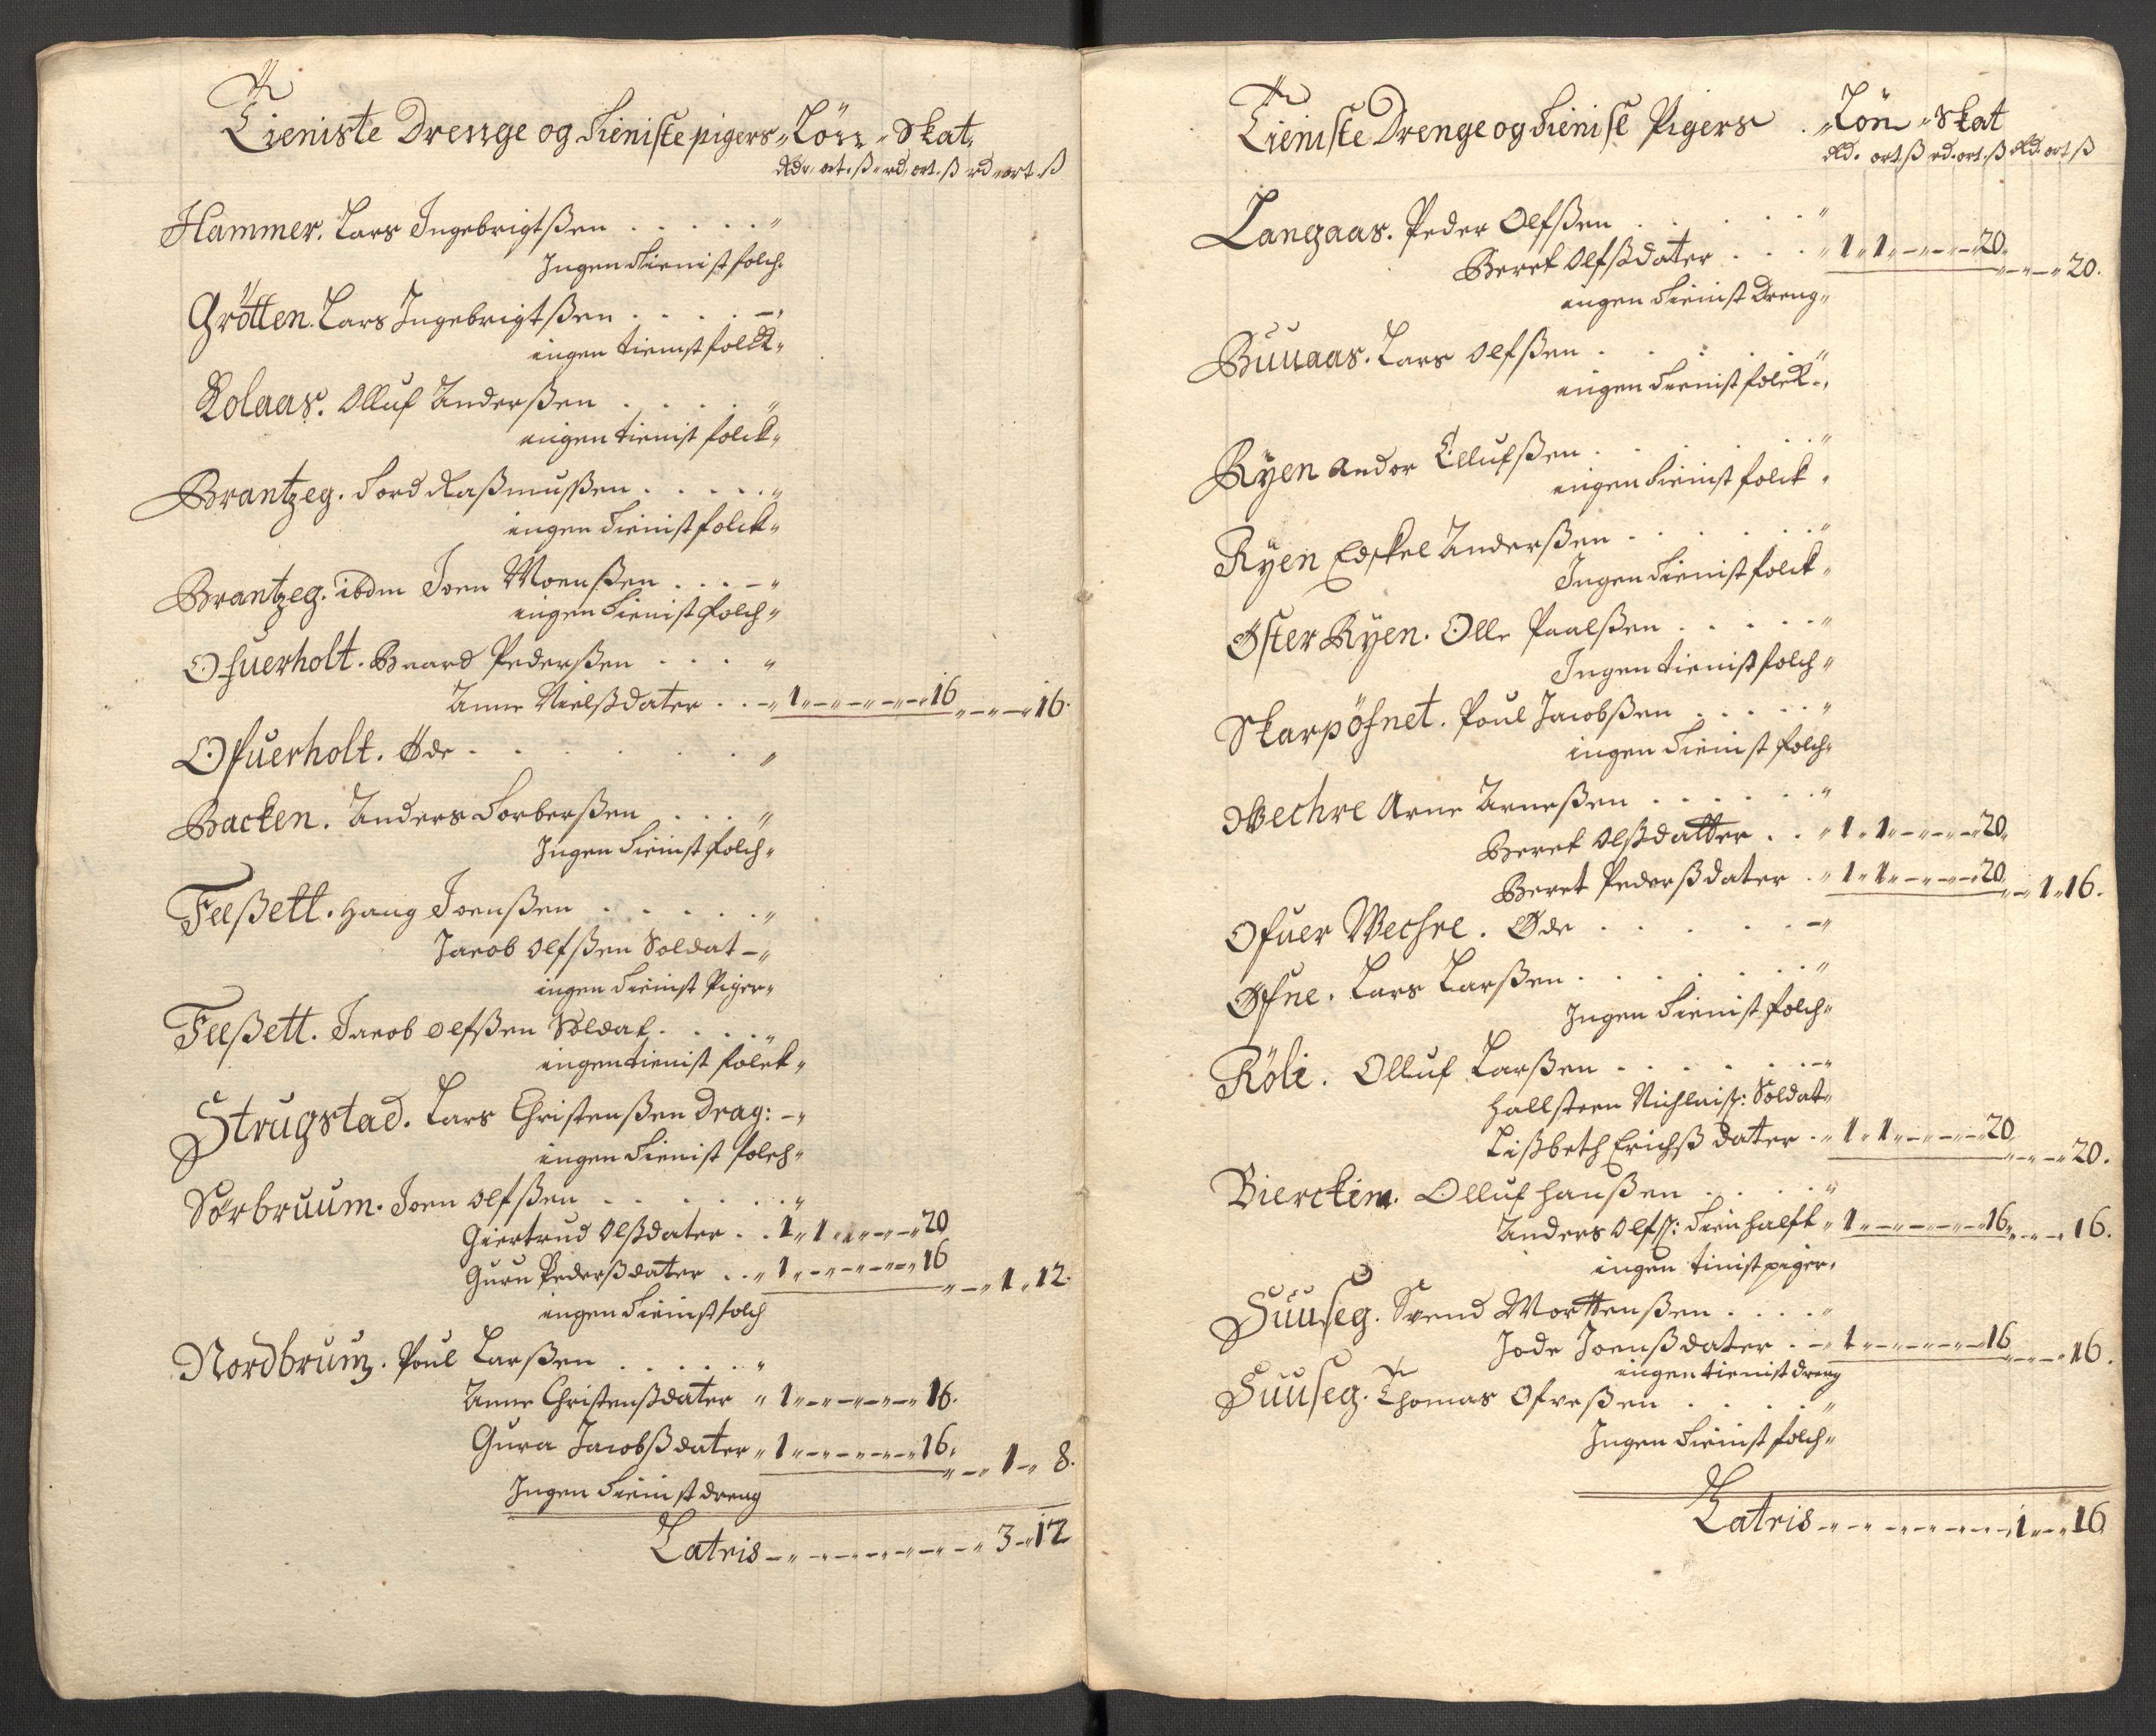 Tieniste Drenge og Tieniste pigers Lön Skat
Rdr. ort. ß rd. ort. ß rd ort. ß
Hammer. Lars Ingebrigtßen . . . . . "
Ingen Tienist folch.
Grötten. Lars Ingebrigtßen . . . . –"
ingen tienist folck"
Kolaas. Olluf Anderßen . . . . "
ingen tienist folck"
Brantzeg. Tord Raßmußen . . . . . "
ingen Tienist folck"
Brantzeg. ibdm Joen Moenßen . . . – "
ingen Tienist folch"
Ofuerholt. Baard Pederßen . . . "
Anne Nielßdater . . – 1 – – – 16 – – 16.
Ofuerholt. Öde . . . . . . "
Backen. Anders Torberßen . . . "
Ingen Tienist folch"
Feeßett. Haug Joenßen . . . . . "
Jacob Olfßen Soldat – "
ingen Tienist Piger"
Feeßett. Jacob Olfßen Soldat . . . . "
ingen tienist folck"
Strugstad. Lars Christenßen Drag: – "
ingen Tienist folch"
Sörbruum. Joen Olfßen . . . . . . "
Giertrud Olßdater . . 1 " 1 – – – 20
Guru Pederßdater . . " 1 – – – 16 – – 1 " 12.
ingen Tienist folch
Nordbrum. Poul Larßen . . . . . "
Anne Christenßdater " 1 – – – 16.
Gura Jacobßdater " 1 – – – 16. – – 1 – 8.
Ingen Tienist dreng
Latris – – – – – – 3 – 12
Tieniste Drenge og Tienise Pigers Lön Skat
dld. ort. ß rd. ort. ß dld. ort ß
Langaas. Peder Olfßen . . . . . "
Beret Olfßdater . . . " 1 " 1 – – – 20. – – – 20.
ingen Tienist Dreng"
Buuaas. Lars Olfßen . . . . . "
ingen Tienist folck"
Ryen Andor Ellufßen . . . . . "
ingen Tienist folck"
Ryen Edskel Anderßen . . . . . "
Ingen Tienist folck"
Öster Ryen. Olle Paalßen . . . . . "
Ingen tienist folch"
Skarpöfnet. Poul Jacobßen . . . . . "
ingen Tienist folch"
Wechre Arne Arneßen . . . . . . "
Beret Olßdatter . . " 1 " 1 – – – 20.
Beret Pederßdater . " 1 " 1 – – – 20 – – 1 " 16.
Ofuer Wechre. Øde . . . . . – "
Øfne. Lars Larßen . . . . . . "
Ingen Tienist folch"
Röli. Olluf Larßen . . . . . – "
Hallsteen Nichlaiß: Soldat"
Lißbeth Erichß dater . " 1 " 1 – – – 20. – – – 20.
Bierckim. Olluf Hanßen . . . . "
Anders Olfß: Tien halft " 1 – – – 16. – – 16.
ingen tinist piger"
Suuseg. Svend Morttenßen . . . . "
Jode Joenßdater . – 1 – – – 16 – – 16.
ingen tienist dreng
Suuseg. Thomas Ofveßen . . . . . "
Ingen Tienist folch"
Latris – – – – – 1 – – 16